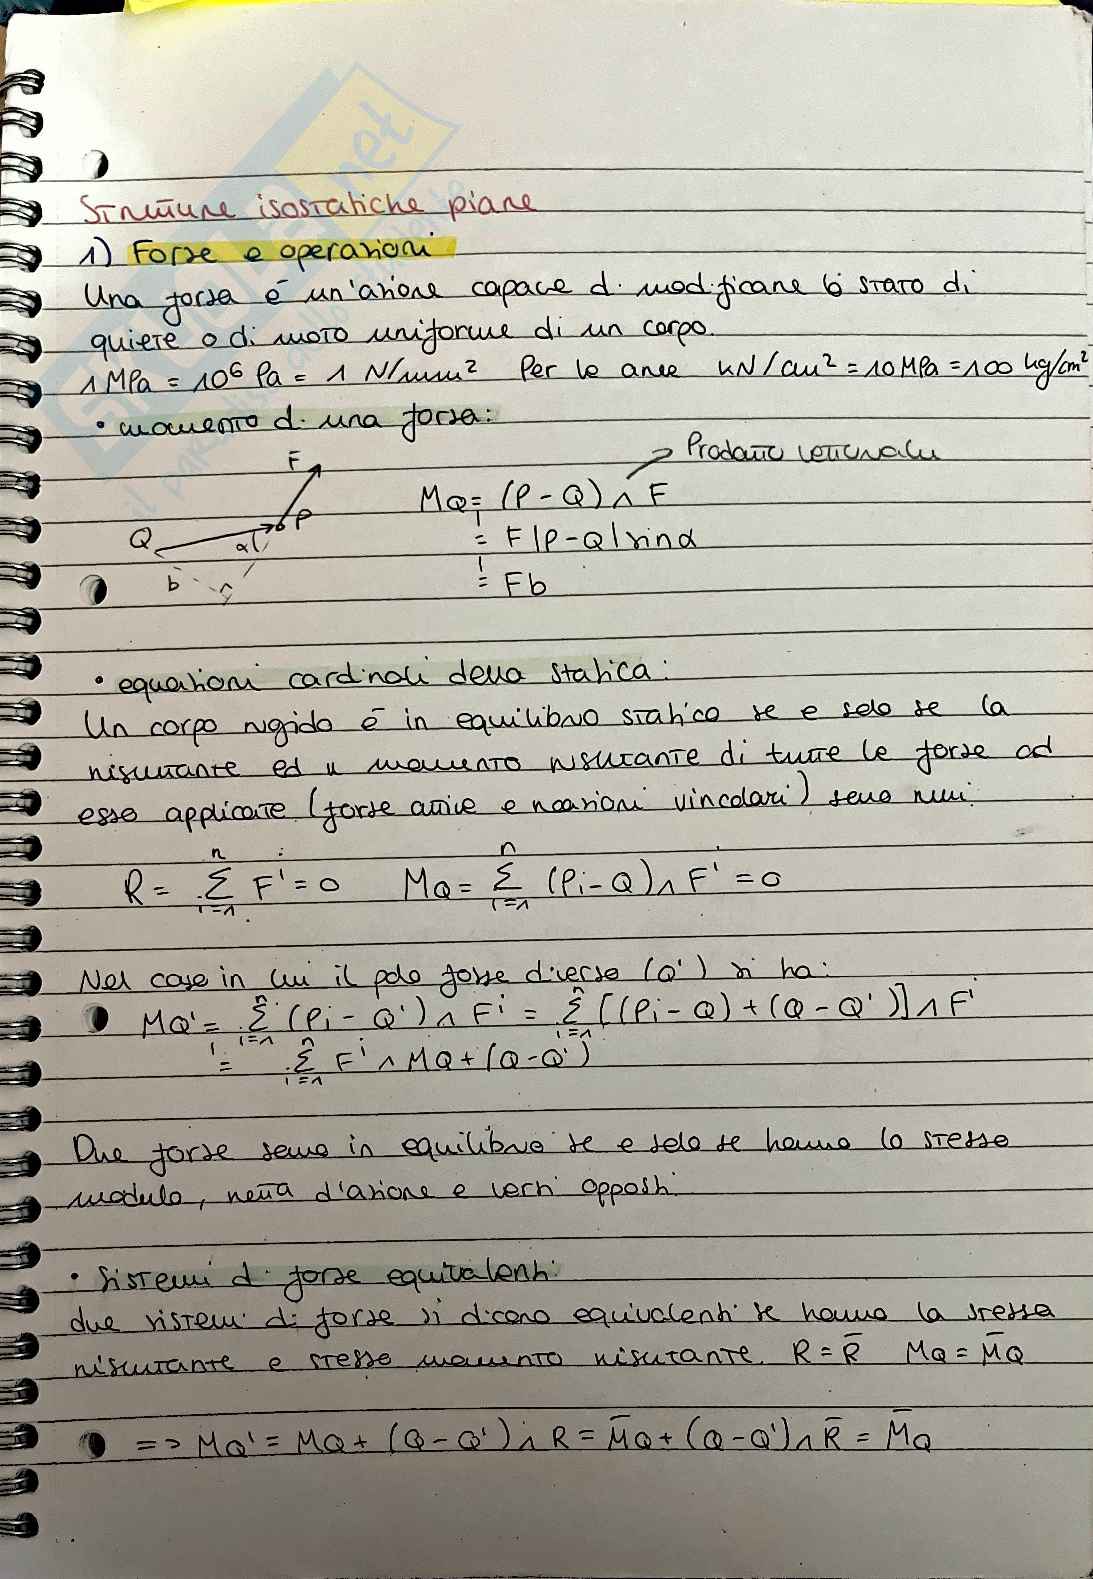 Strutture isostatiche piane
1) Forze e operazioni
Una forza è un'azione capace di modificare lo stato di
quiete o di moto uniforme di un corpo.
1 MPa = 10⁶ Pa = 1 N/mm² Per le aree kN/cm² = 10 MPa = 100 kg/cm²
• momento di una forza:
F Prodotto vettoriale
Q P α b
MQ = (P - Q) ∧ F
= F |P - Q| sin α
= Fb
• equazioni cardinali della statica:
Un corpo rigido è in equilibrio statico se e solo se la
risultante ed il momento risultante di tutte le forze ad
esso applicate (forze attive e reazioni vincolari) sono nulli.
R = Σ_{i=1}^{n} F^i = 0 MQ = Σ_{i=1}^{n} (Pi - Q) ∧ F^i = 0
Nel caso in cui il polo fosse diverso (Q') si ha:
MQ' = Σ_{i=1}^{n} (Pi - Q') ∧ F^i = Σ_{i=1}^{n} [(Pi - Q) + (Q - Q')] ∧ F^i
= Σ_{i=1}^{n} F^i ∧ MQ + (Q - Q')
Due forze sono in equilibrio se e solo se hanno lo stesso
modulo, retta d'azione e versi opposti.
• Sistemi di forze equivalenti:
due sistemi di forze si dicono equivalenti se hanno la stessa
risultante e stesso momento risultante. R = R̄ MQ = M̄Q
=> MQ' = MQ + (Q - Q') ∧ R = M̄Q + (Q - Q') ∧ R̄ = M̄Q